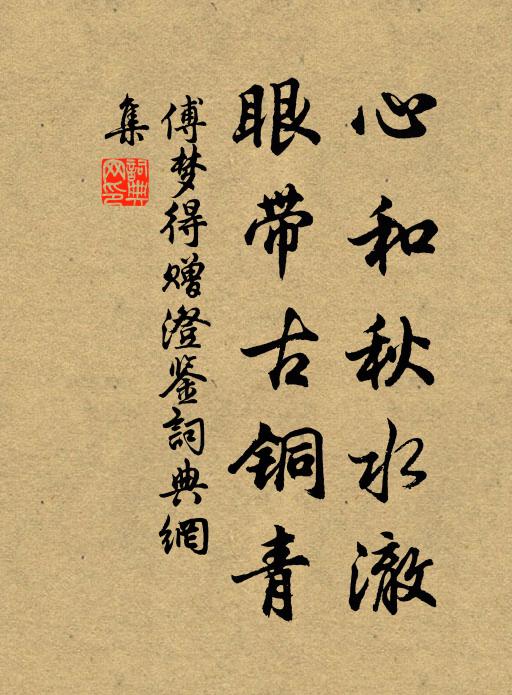 心和秋水澈
眼带古铜青
傅梦得赠澄鉴詞典網
集
詞典
网印